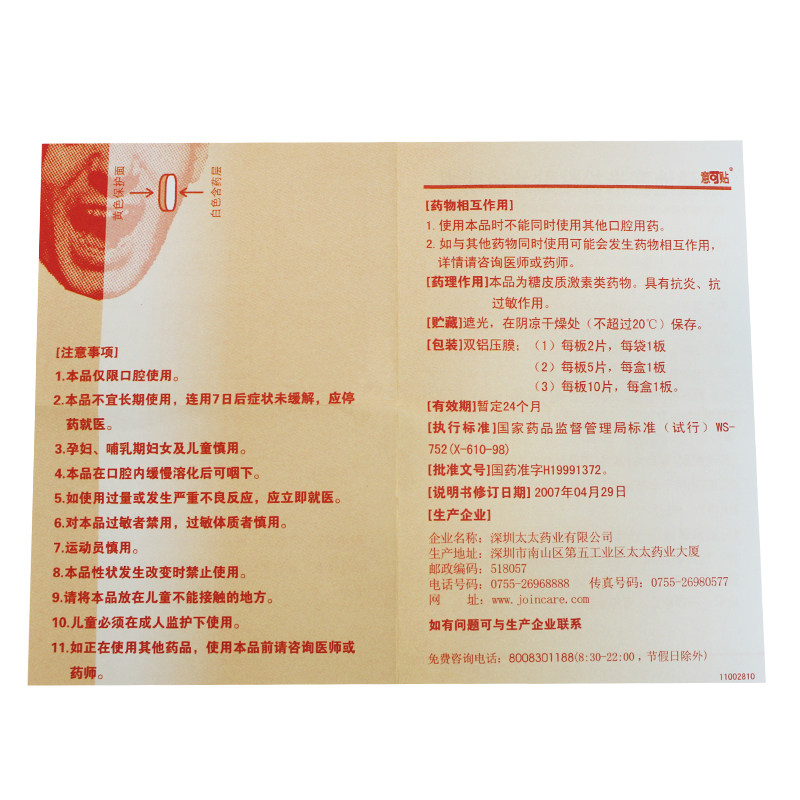 黄色保护面
白色含药层
[注意事项]
1.本品仅限口腔使用。
2.本品不宜长期使用，连用7日后症状未缓解，应停
药就医。
3.孕妇、哺乳期妇女及儿童慎用。
4.本品在口腔内缓慢溶化后可咽下。
5.如使用过量或发生严重不良反应，应立即就医。
6.对本品过敏者禁用，过敏体质者慎用。
7.运动员慎用。
8.本品性状发生改变时禁止使用。
9.请将本品放在儿童不能接触的地方。
10.儿童必须在成人监护下使用。
11.如正在使用其他药品，使用本品前请咨询医师或
药师。
意可贴®
[药物相互作用]
1. 使用本品时不能同时使用其他口腔用药。
2. 如与其他药物同时使用可能会发生药物相互作用，
详情请咨询医师或药师。
[药理作用]本品为糖皮质激素类药物。具有抗炎、抗
过敏作用。
[贮藏]遮光，在阴凉干燥处（不超过20℃）保存。
[包装]双铝压膜；（1）每板2片，每袋1板
（2）每板5片，每盒1板
（3）每板10片，每盒1板。
[有效期]暂定24个月
[执行标准]国家药品监督管理局标准（试行）WS-
752(X-610-98)
[批准文号]国药准字H19991372。
[说明书修订日期] 2007年04月29日
[生产企业]
企业名称：深圳太太药业有限公司
生产地址：深圳市南山区第五工业区太太药业大厦
邮政编码：518057
电话号码：0755-26968888 传真号码：0755-26980577
网 址：www.joincare.com
如有问题可与生产企业联系
免费咨询电话：8008301188(8:30-22:00，节假日除外)
11002810